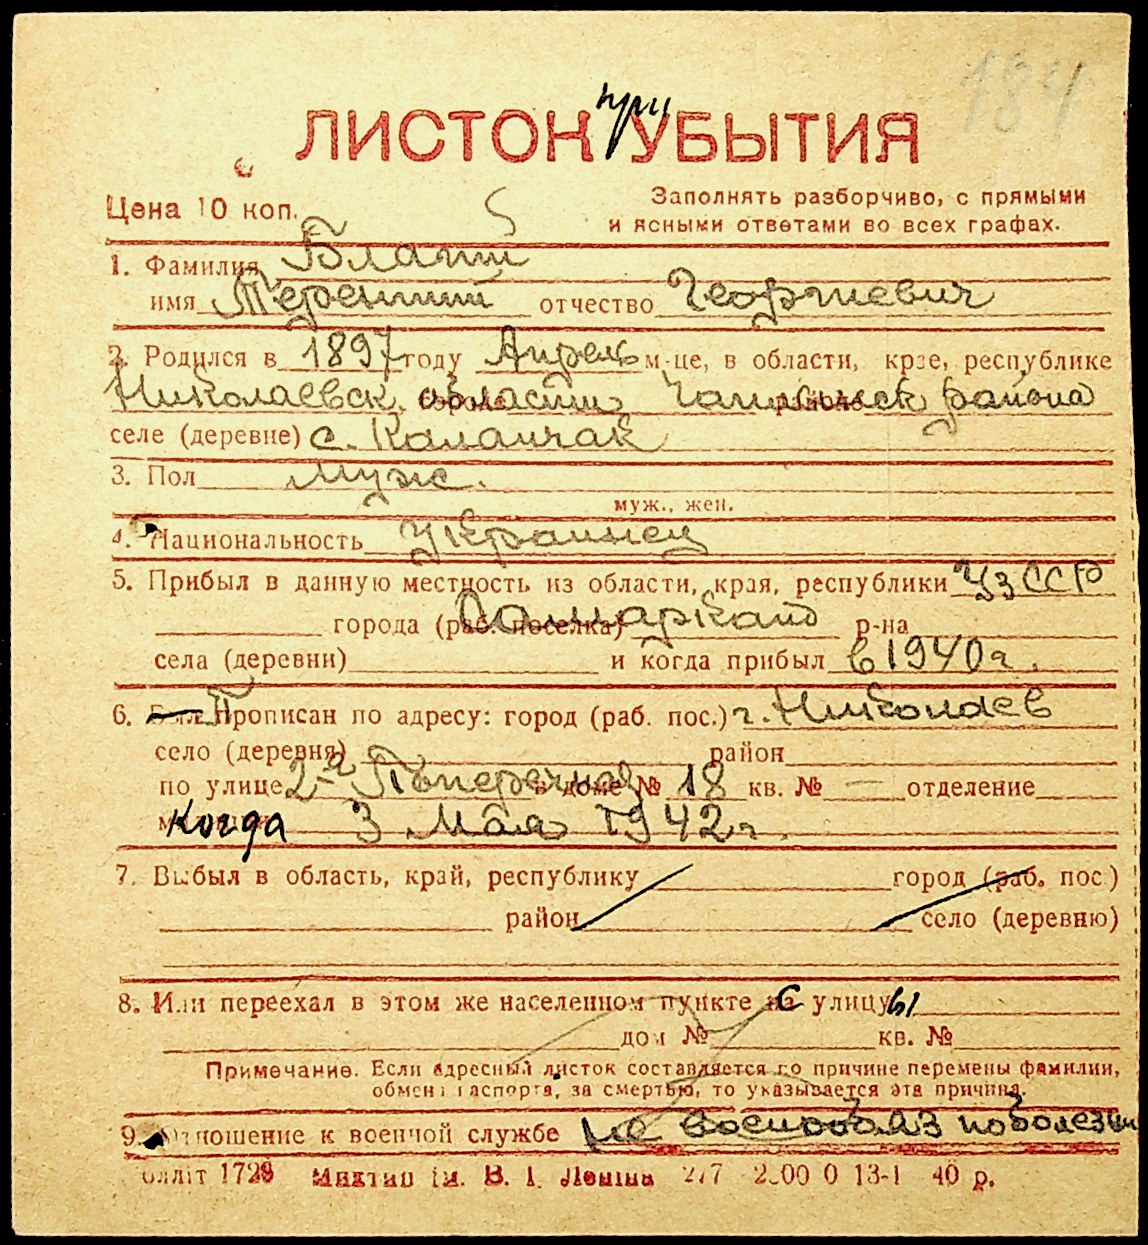 184
ЛИСТОК при УБЫТИЯ
Цена 10 коп.
Заполнять разборчиво, с прямыми
и ясными ответами во всех графах.
1. Фамилия Благий
имя Терентий отчество Георгиевич
2. Родился в 1897 году Апрель м-це, в области, крае, республике
Николаевск. области Чаплинск района
селе (деревне) с. Каланчак
3. Пол Муж.
муж., жен.
4. Национальность Украинец
5. Прибыл в данную местность из области, края, республики УзССР
города (раб. поселка) Самарканд р-на
села (деревни) и когда прибыл в 1940 г.
6. Был Прописан по адресу: город (раб. пос.) г. Николаев
село (деревня) район
по улице 2-я Поперечная в доме № 18 кв. № — отделение
Когда 3 Мая 1942 г.
7. Выбыл в область, край, республику город (раб. пос.)
район село (деревню)
8. Или переехал в этом же населенном пункте с улицы
дом № кв. №
Примечание. Если адресный листок составляется по причине перемены фамилии,
обмена паспорта, за смертью, то указывается эта причина.
9. Отношение к военной службе не военнообяз по болезни
Облліт 1728 Миктип ім. В. І. Леніна 277 2000 0 13-І 40 р.